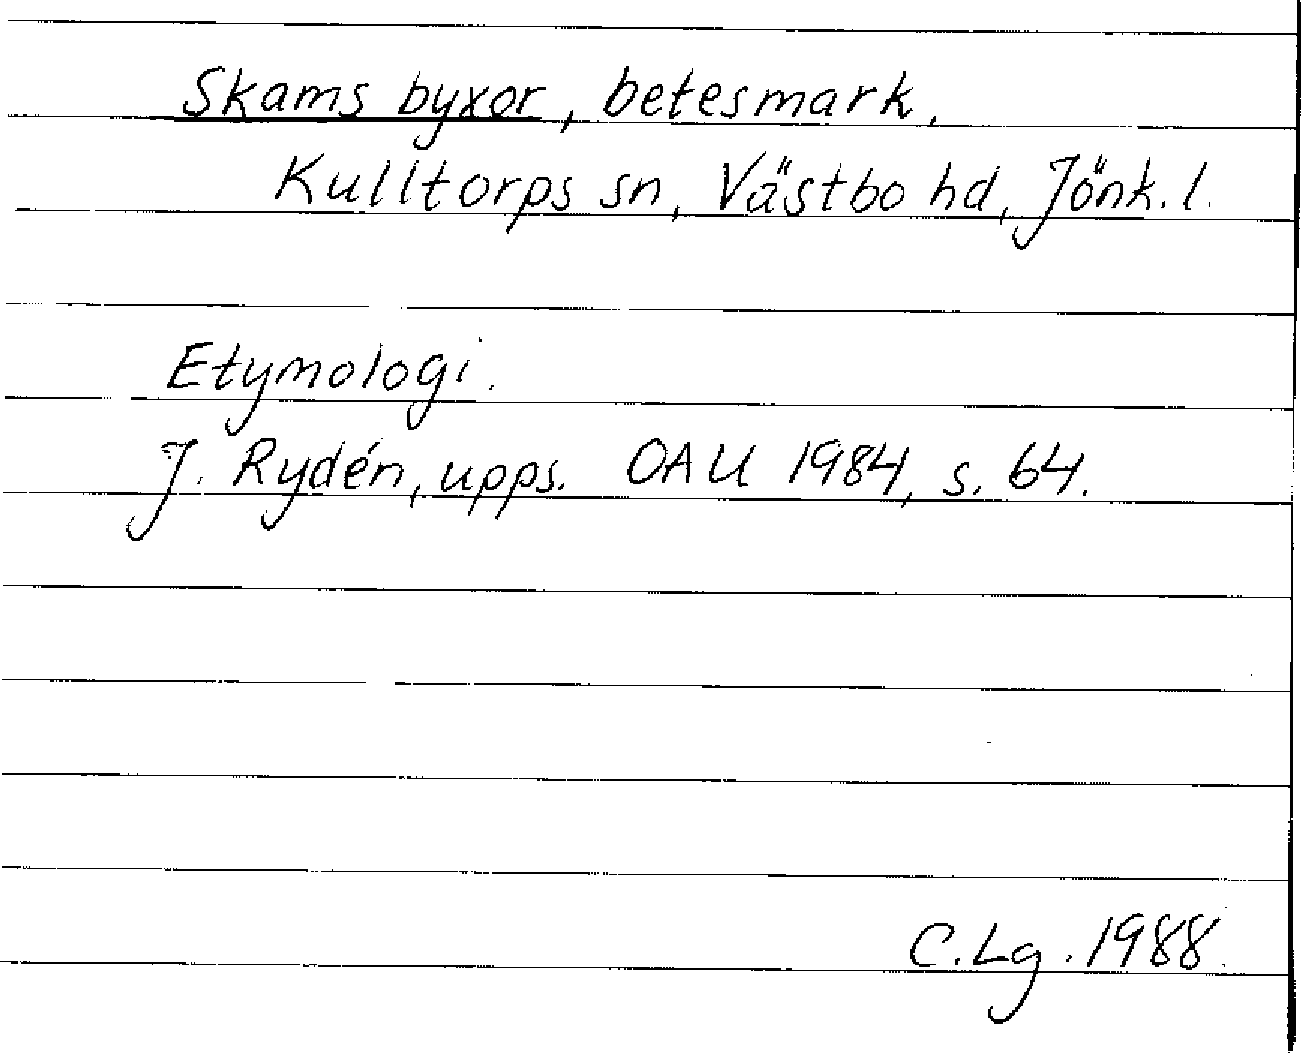 Skams byxor, betesmark.
Kulltorps sn, Västbo hd, Jönk. l.
Etymologi.
J. Rydén, upps. OAU 1984, s. 64.
C. Lg. 1988.